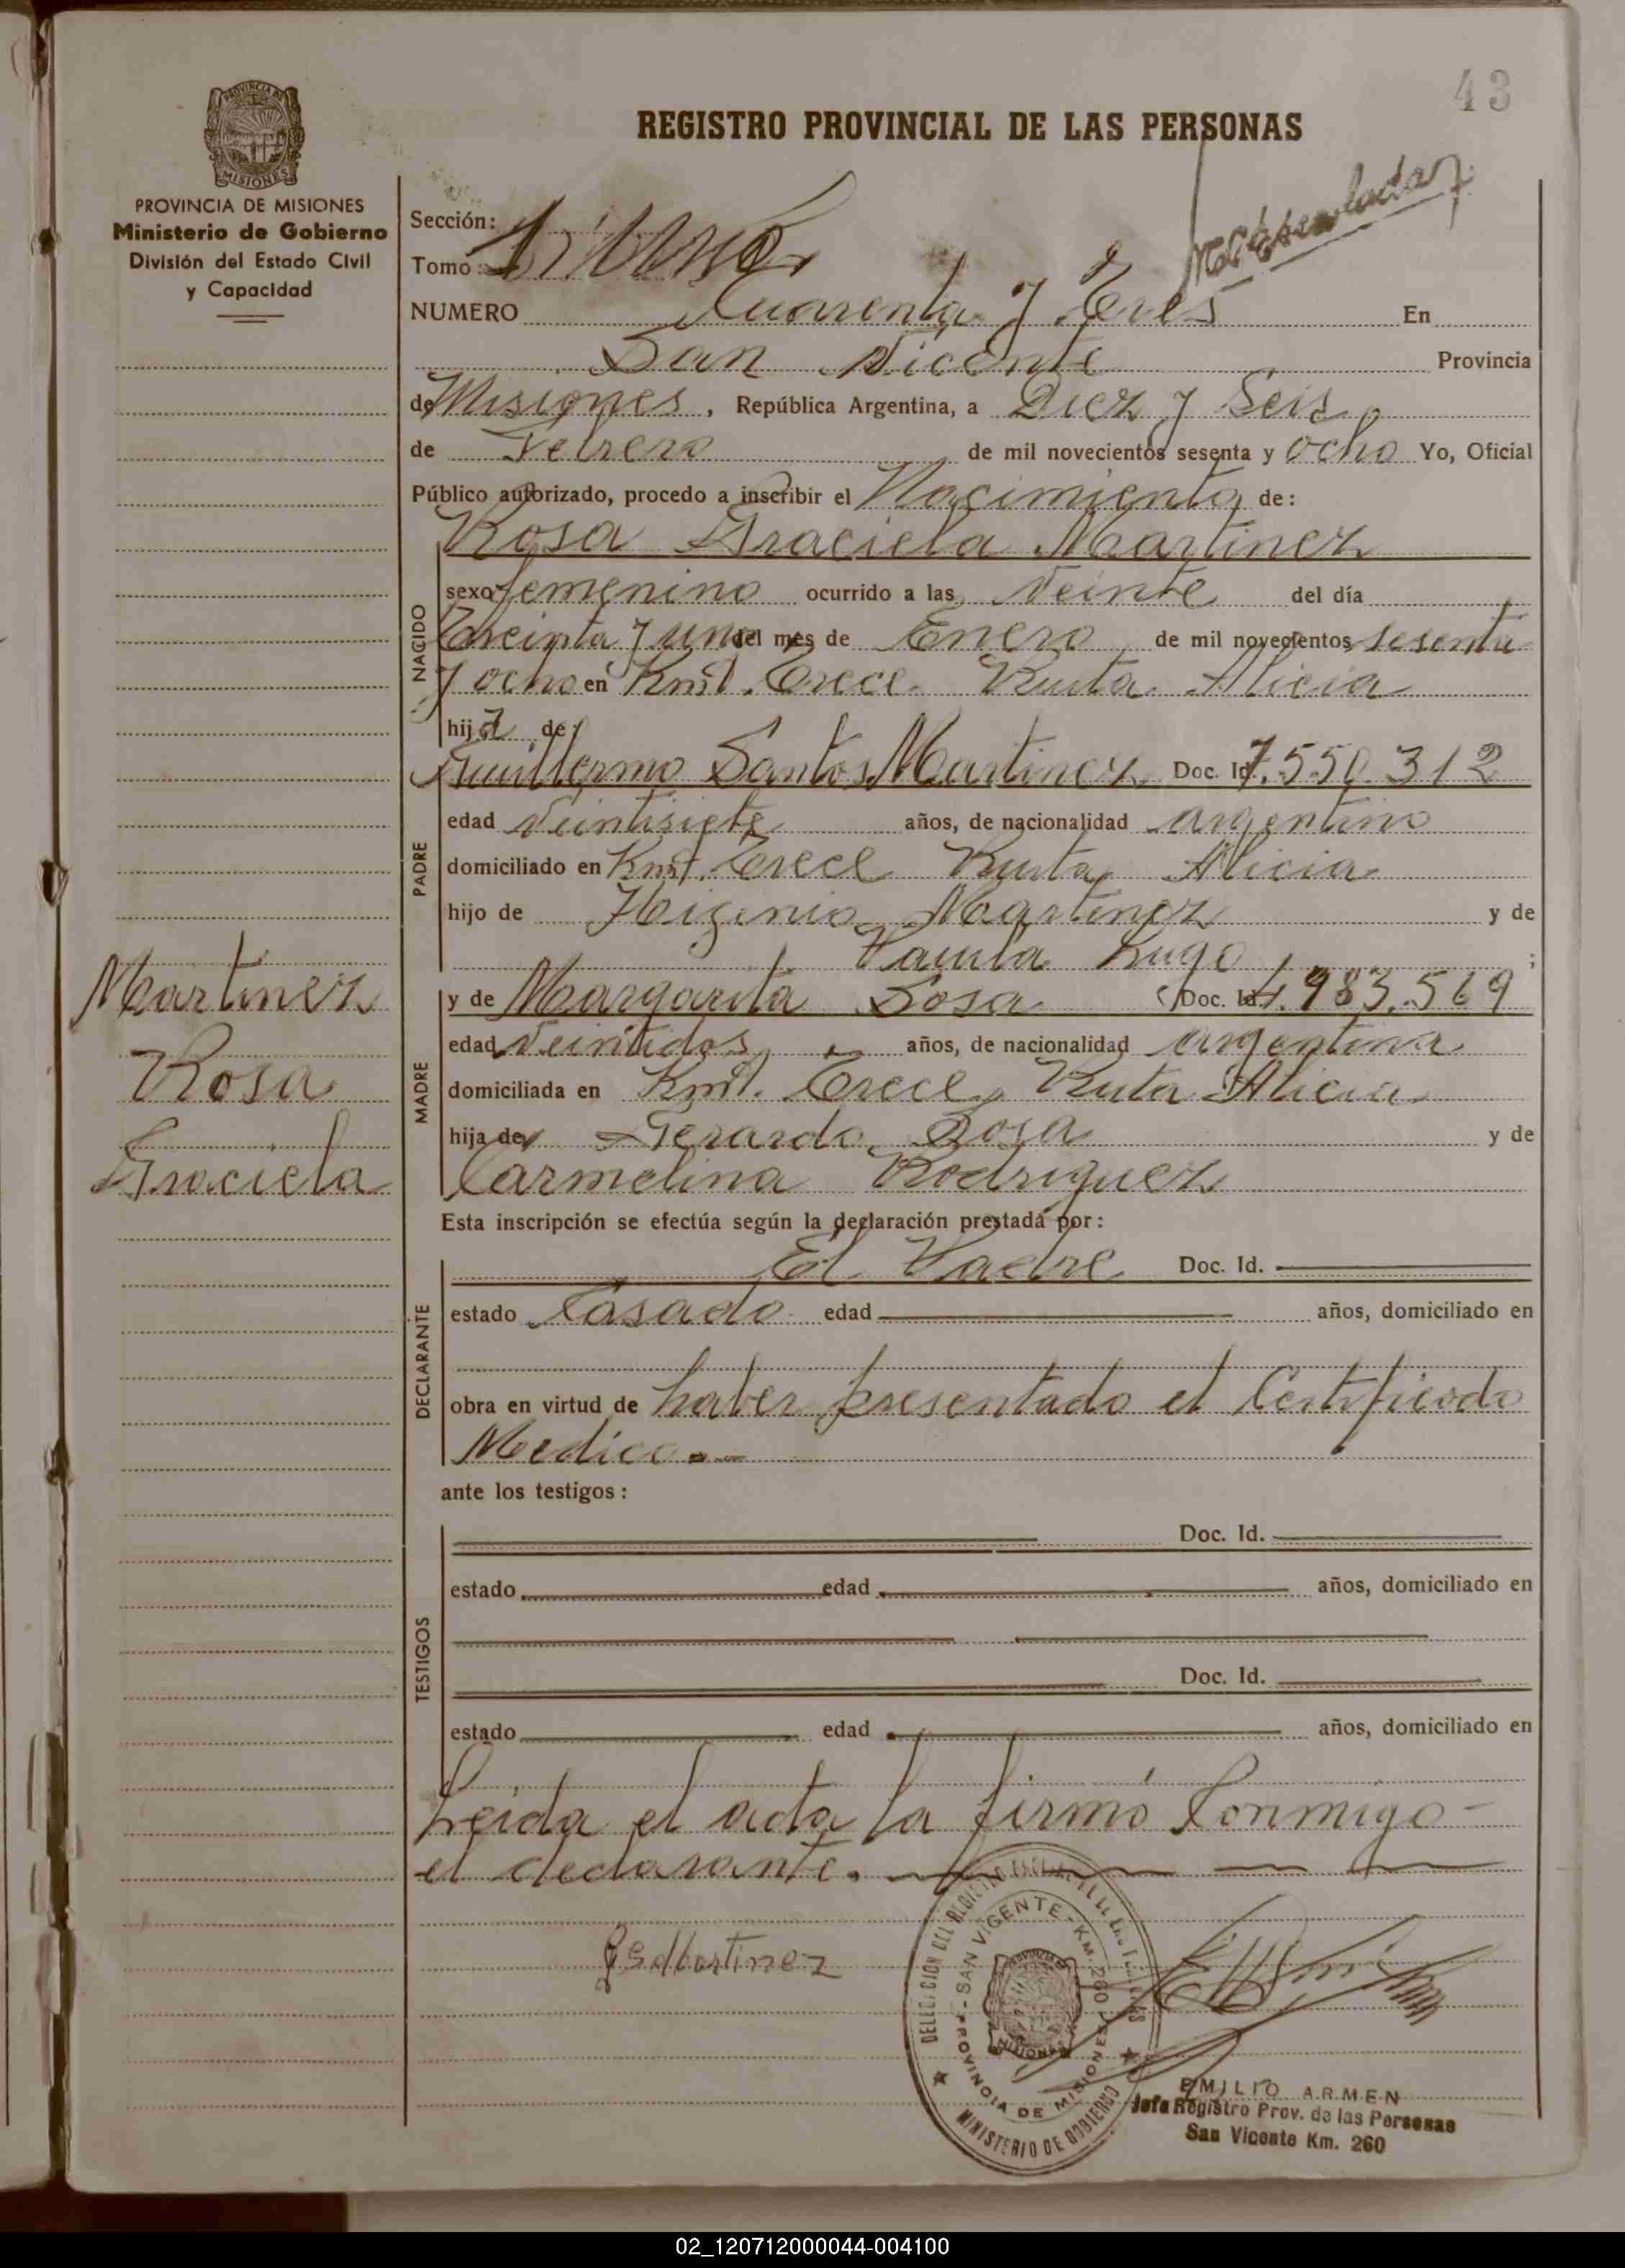 43
REGISTRO PROVINCIAL DE LAS PERSONAS
PROVINCIA DE
MISIONES
PROVINCIA DE MISIONES
Ministerio de Gobierno
División del Estado Civil
y Capacidad
Sección:
Tomo:
NUMERO Cuarenta y Tres En
San Vicente Provincia
de Misiones, República Argentina, a Diez y Seis
de Febrero de mil novecientos sesenta y ocho Yo, Oficial
Público autorizado, procedo a inscribir el Nacimiento de:
Rosa Graciela Martinez
NACIDO
sexo femenino ocurrido a las Veinte del día
Treinta y uno del mes de Enero de mil novecientos sesenta
y ocho en Kmt. Trece Ruta Alicia
hija de
PADRE
Guillermo Santos Martinez Doc. Id. 7.550.312
edad Veintisiete años, de nacionalidad argentino
domiciliado en Kmt. Trece Ruta Alicia
hijo de Higinio Martinez y de
Paula Lugo ;
Martinez
Rosa
Graciela
MADRE
y de Margarita Sosa Doc. Id. 4.983.569
edad Veintidos años, de nacionalidad argentina
domiciliada en Kmt. Trece, Ruta Alicia
hija de Gerardo Sosa y de
Carmelina Rodriguez
Esta inscripción se efectúa según la declaración prestada por:
DECLARANTE
El Padre Doc. Id.
estado Casado edad años, domiciliado en
obra en virtud de haber presentado el Certificado
Medico.-
ante los testigos:
TESTIGOS
Doc. Id.
estado edad años, domiciliado en
Doc. Id.
estado edad años, domiciliado en
Leida el acta la firmó Conmigo -
el declarante.
GSMartinez
DELEGACION DEL REGISTRO
SAN VICENTE - KM. 260
PROVINCIA DE MISIONES
MINISTERIO DE GOBIERNO
EMILIO ARMEN
Jefe Registro Prov. de las Personas
San Vicente Km. 260
02_120712000044-004100